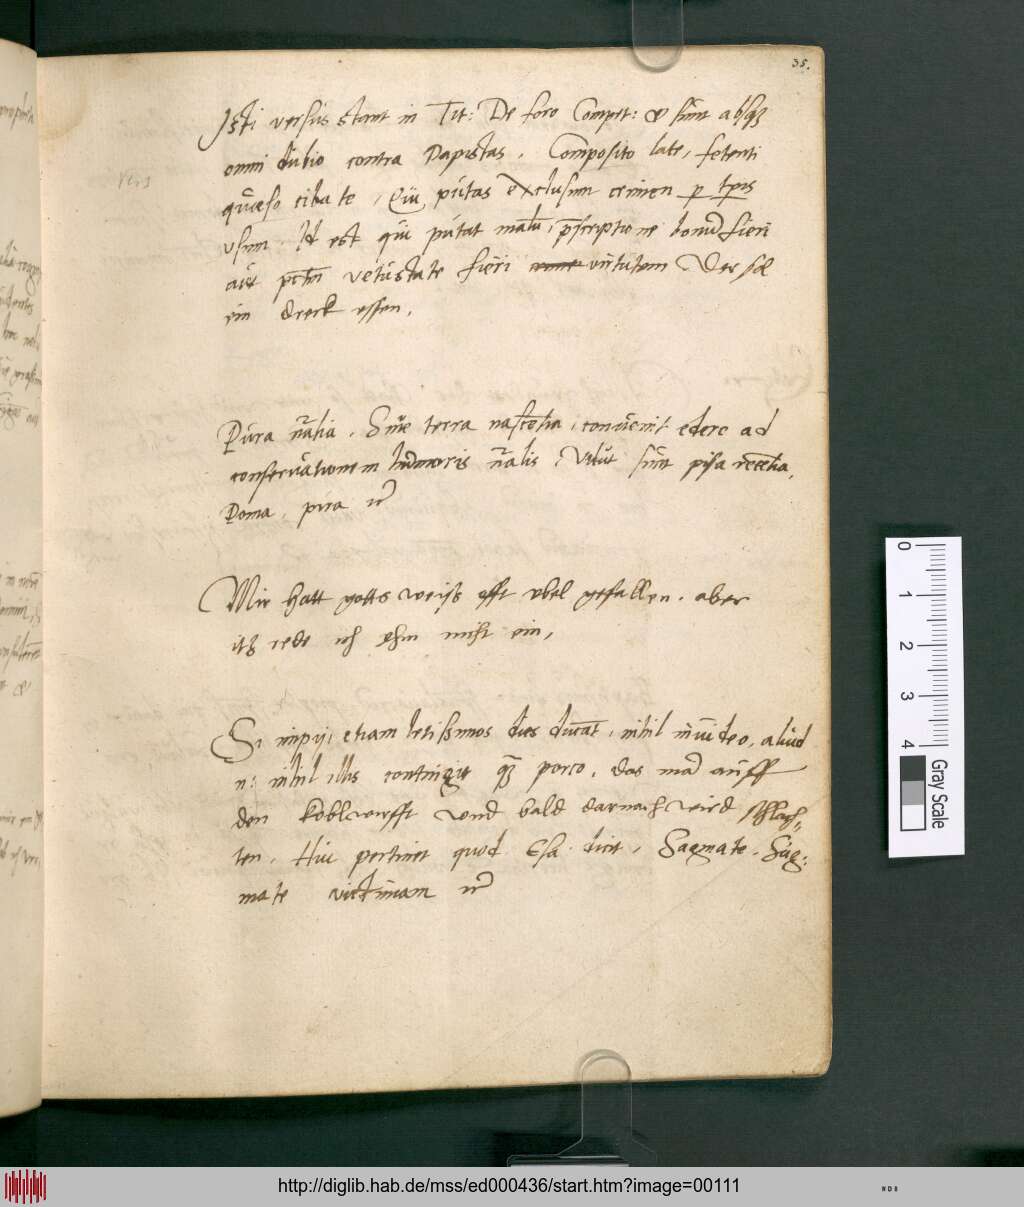 35.
Isti versus stant in Tit: De foro Compet: et sunt absq3
omni dubio contra Papistas. Composito late, fetenti
quaeso cibate, Qui putas exclusum crimen p tpis
usum. Id est qui putat malu, pscriptione bonu fieri
aut pctm vetustate fieri virtutem Der sol
ein dreck essen.
Pura nralia. Sine terra nascentia, convenit edere ad
conservationem humoris nralis, Velut sunt pisa recentia,
Poma, pira
Mir hatt gotts weiß offt ubel gefallen. aber
itz rede ich ihm nicht ein,
Si impij, etiam letissimos dies ducat, nihil invideo, aliud
n: nihil illis contingit q3 porco, das ma auff
den koblwirfft und bald darnach wird schlach=
ten. Huc pertinet quod Esa. dicit, Sagmate. Sag:
mate victimam
0 1 2 3 4
Gray Scale
http://diglib.hab.de/mss/ed000436/start.htm?image=00111